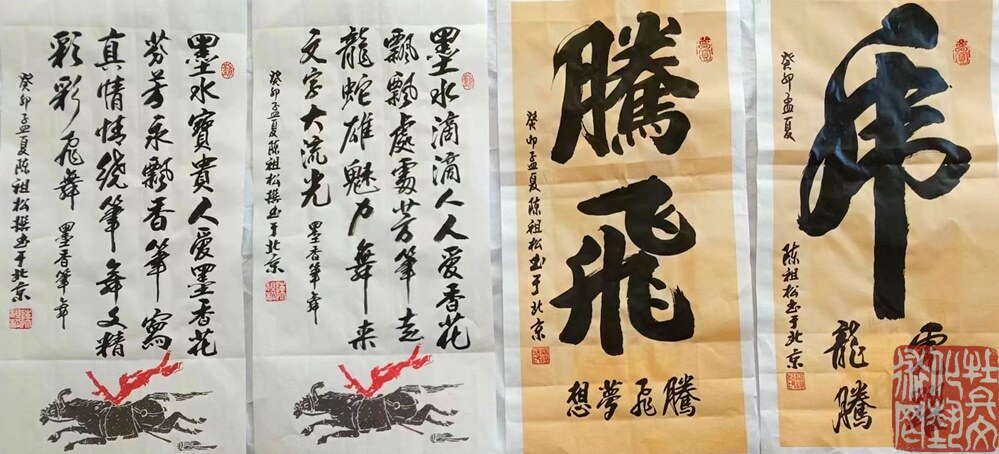 墨水寶貴人愛墨香花
芬芳永飄香筆寫
真情情繞筆舞文精
彩彩飛舞 墨香筆舞
癸卯孟夏陈祖松撰书于北京
墨水滴滴人人愛香花
飄飄處處芳筆走
龍蛇雄魅力舞来
文字大流光 墨香筆舞
癸卯孟夏陈祖松撰书于北京
騰飛
癸卯孟夏陈祖松书于北京
騰飛夢想
虎
癸卯孟夏
陈祖松书于北京
龍騰